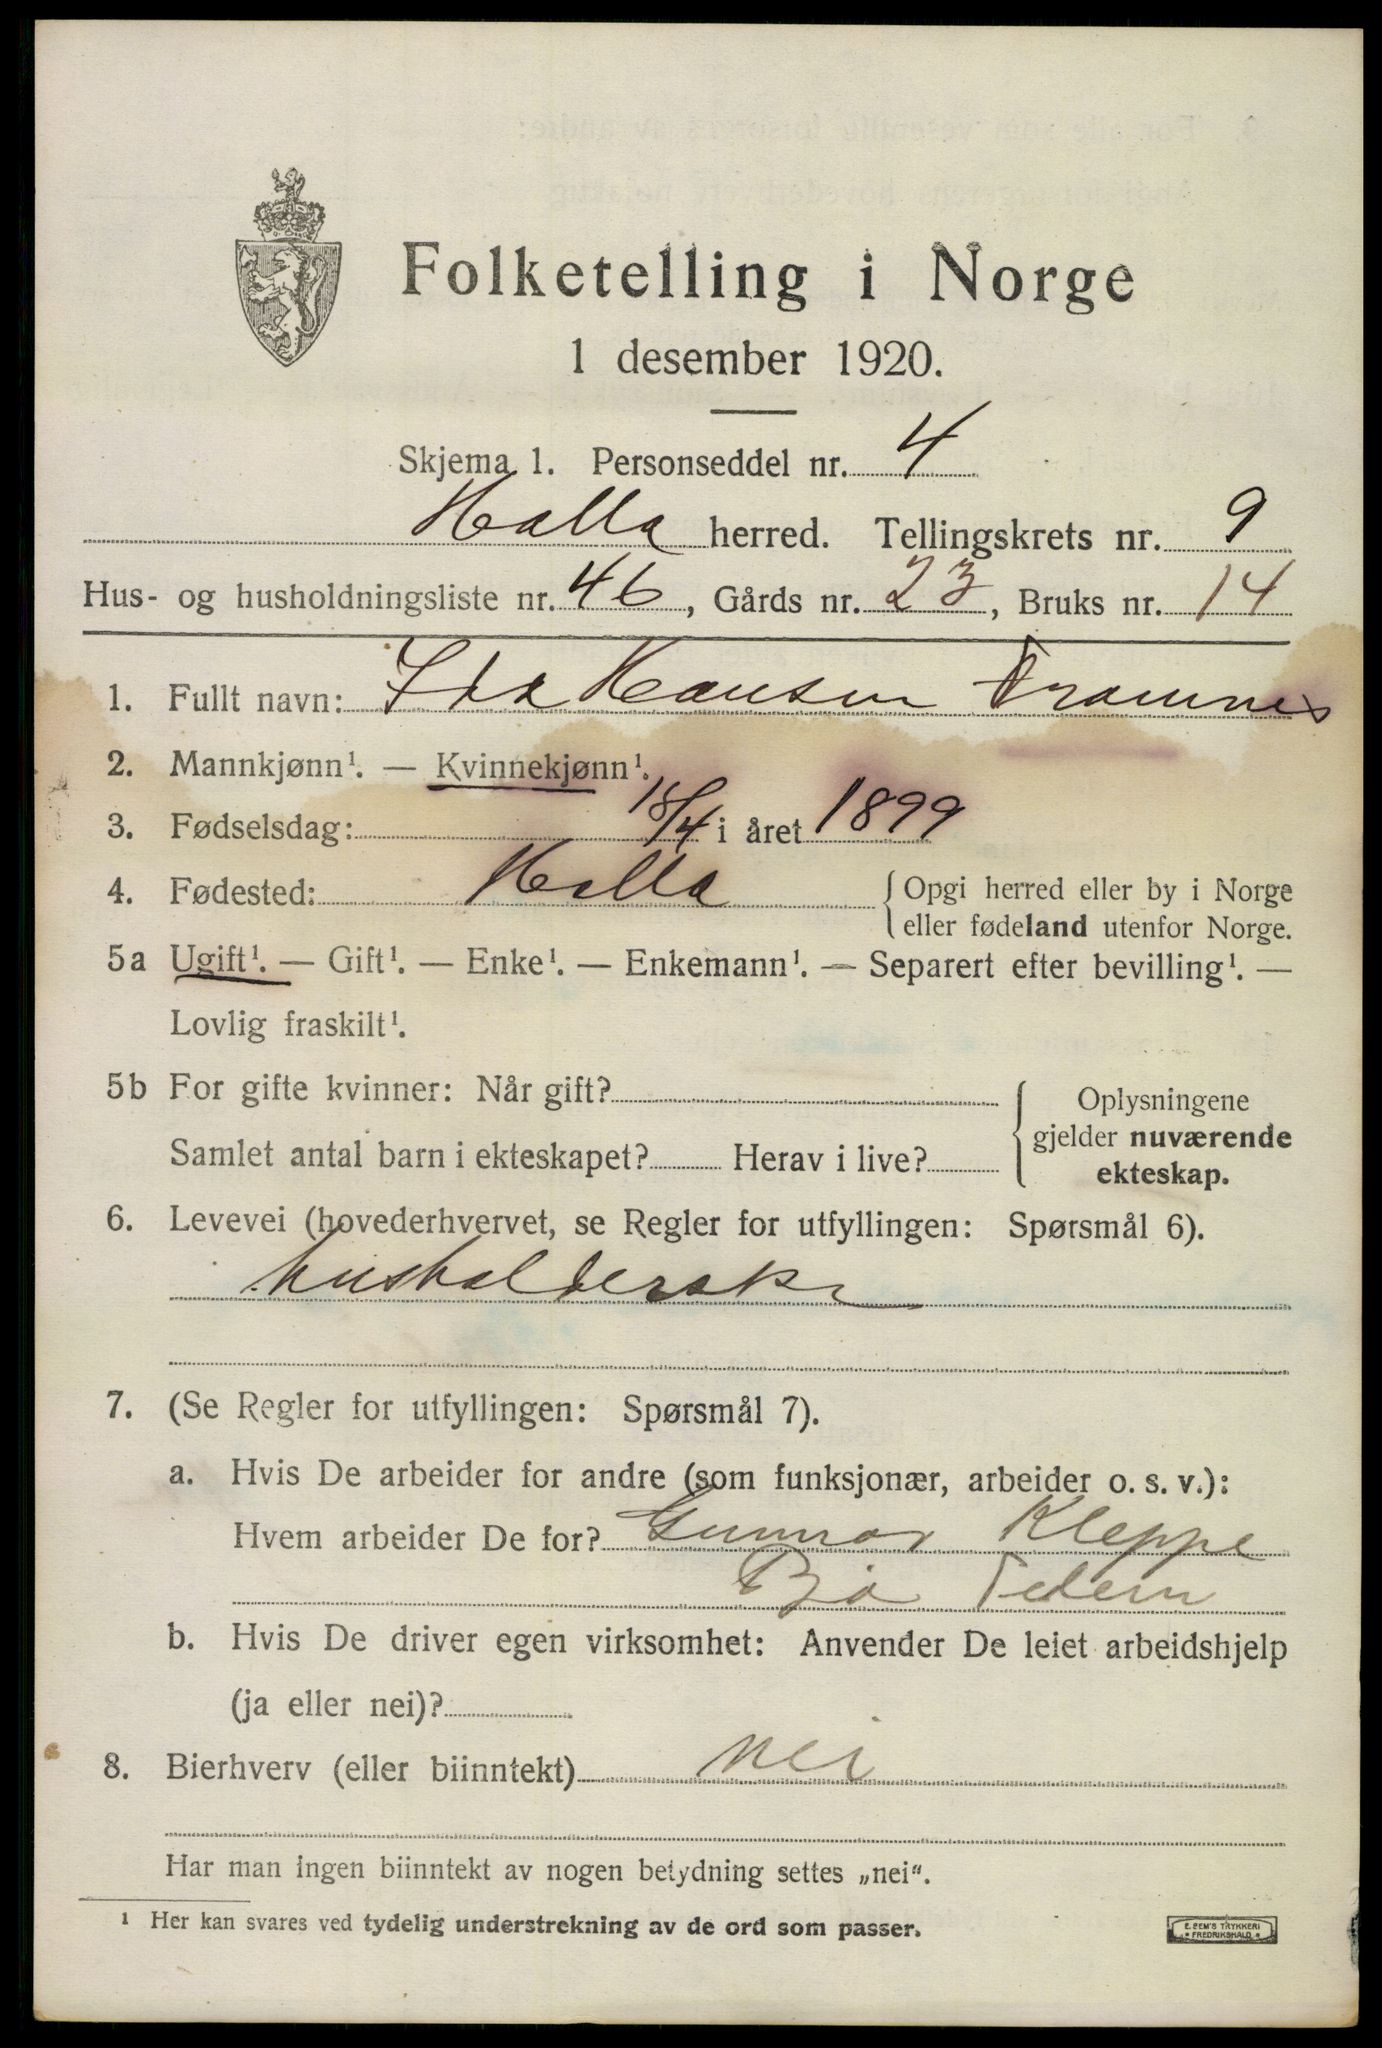 Folketelling i Norge
1 desember 1920.
Skjema 1. Personseddel nr. 4
Holla herred. Tellingskrets nr. 9
Hus- og husholdningsliste nr. 46, Gårds nr. 23, Bruks nr. 14
1. Fullt navn: Ida Hansen Tramnes
2. Mannkjønn¹. — Kvinnekjønn¹.
3. Fødselsdag: 18/4 i året 1899
4. Fødested: Holla { Opgi herred eller by i Norge
eller fødeland utenfor Norge.
5a Ugift¹. — Gift¹. — Enke¹. — Enkemann¹. — Separert efter bevilling¹. —
Lovlig fraskilt¹.
5b For gifte kvinner: Når gift? { Oplysningene
gjelder nuværende
ekteskap.
Samlet antal barn i ekteskapet? Herav i live?
6. Levevei (hovederhvervet, se Regler for utfyllingen: Spørsmål 6).
husholderske
7. (Se Regler for utfyllingen: Spørsmål 7).
a. Hvis De arbeider for andre (som funksjonær, arbeider o. s. v.):
Hvem arbeider De for? Gunnar Kleppe
Bø Telem
b. Hvis De driver egen virksomhet: Anvender De leiet arbeidshjelp
(ja eller nei)?
8. Bierhverv (eller biinntekt) nei
Har man ingen biinntekt av nogen betydning settes „nei“.
¹ Her kan svares ved tydelig understrekning av de ord som passer.
E. SEM'S TRYKKERI
FREDRIKSHALD